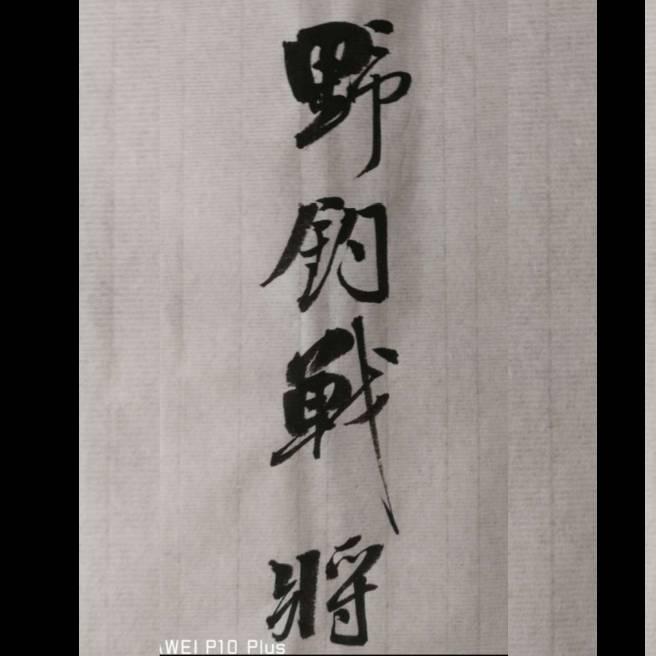 野釣戰將
WEI P10 Plus